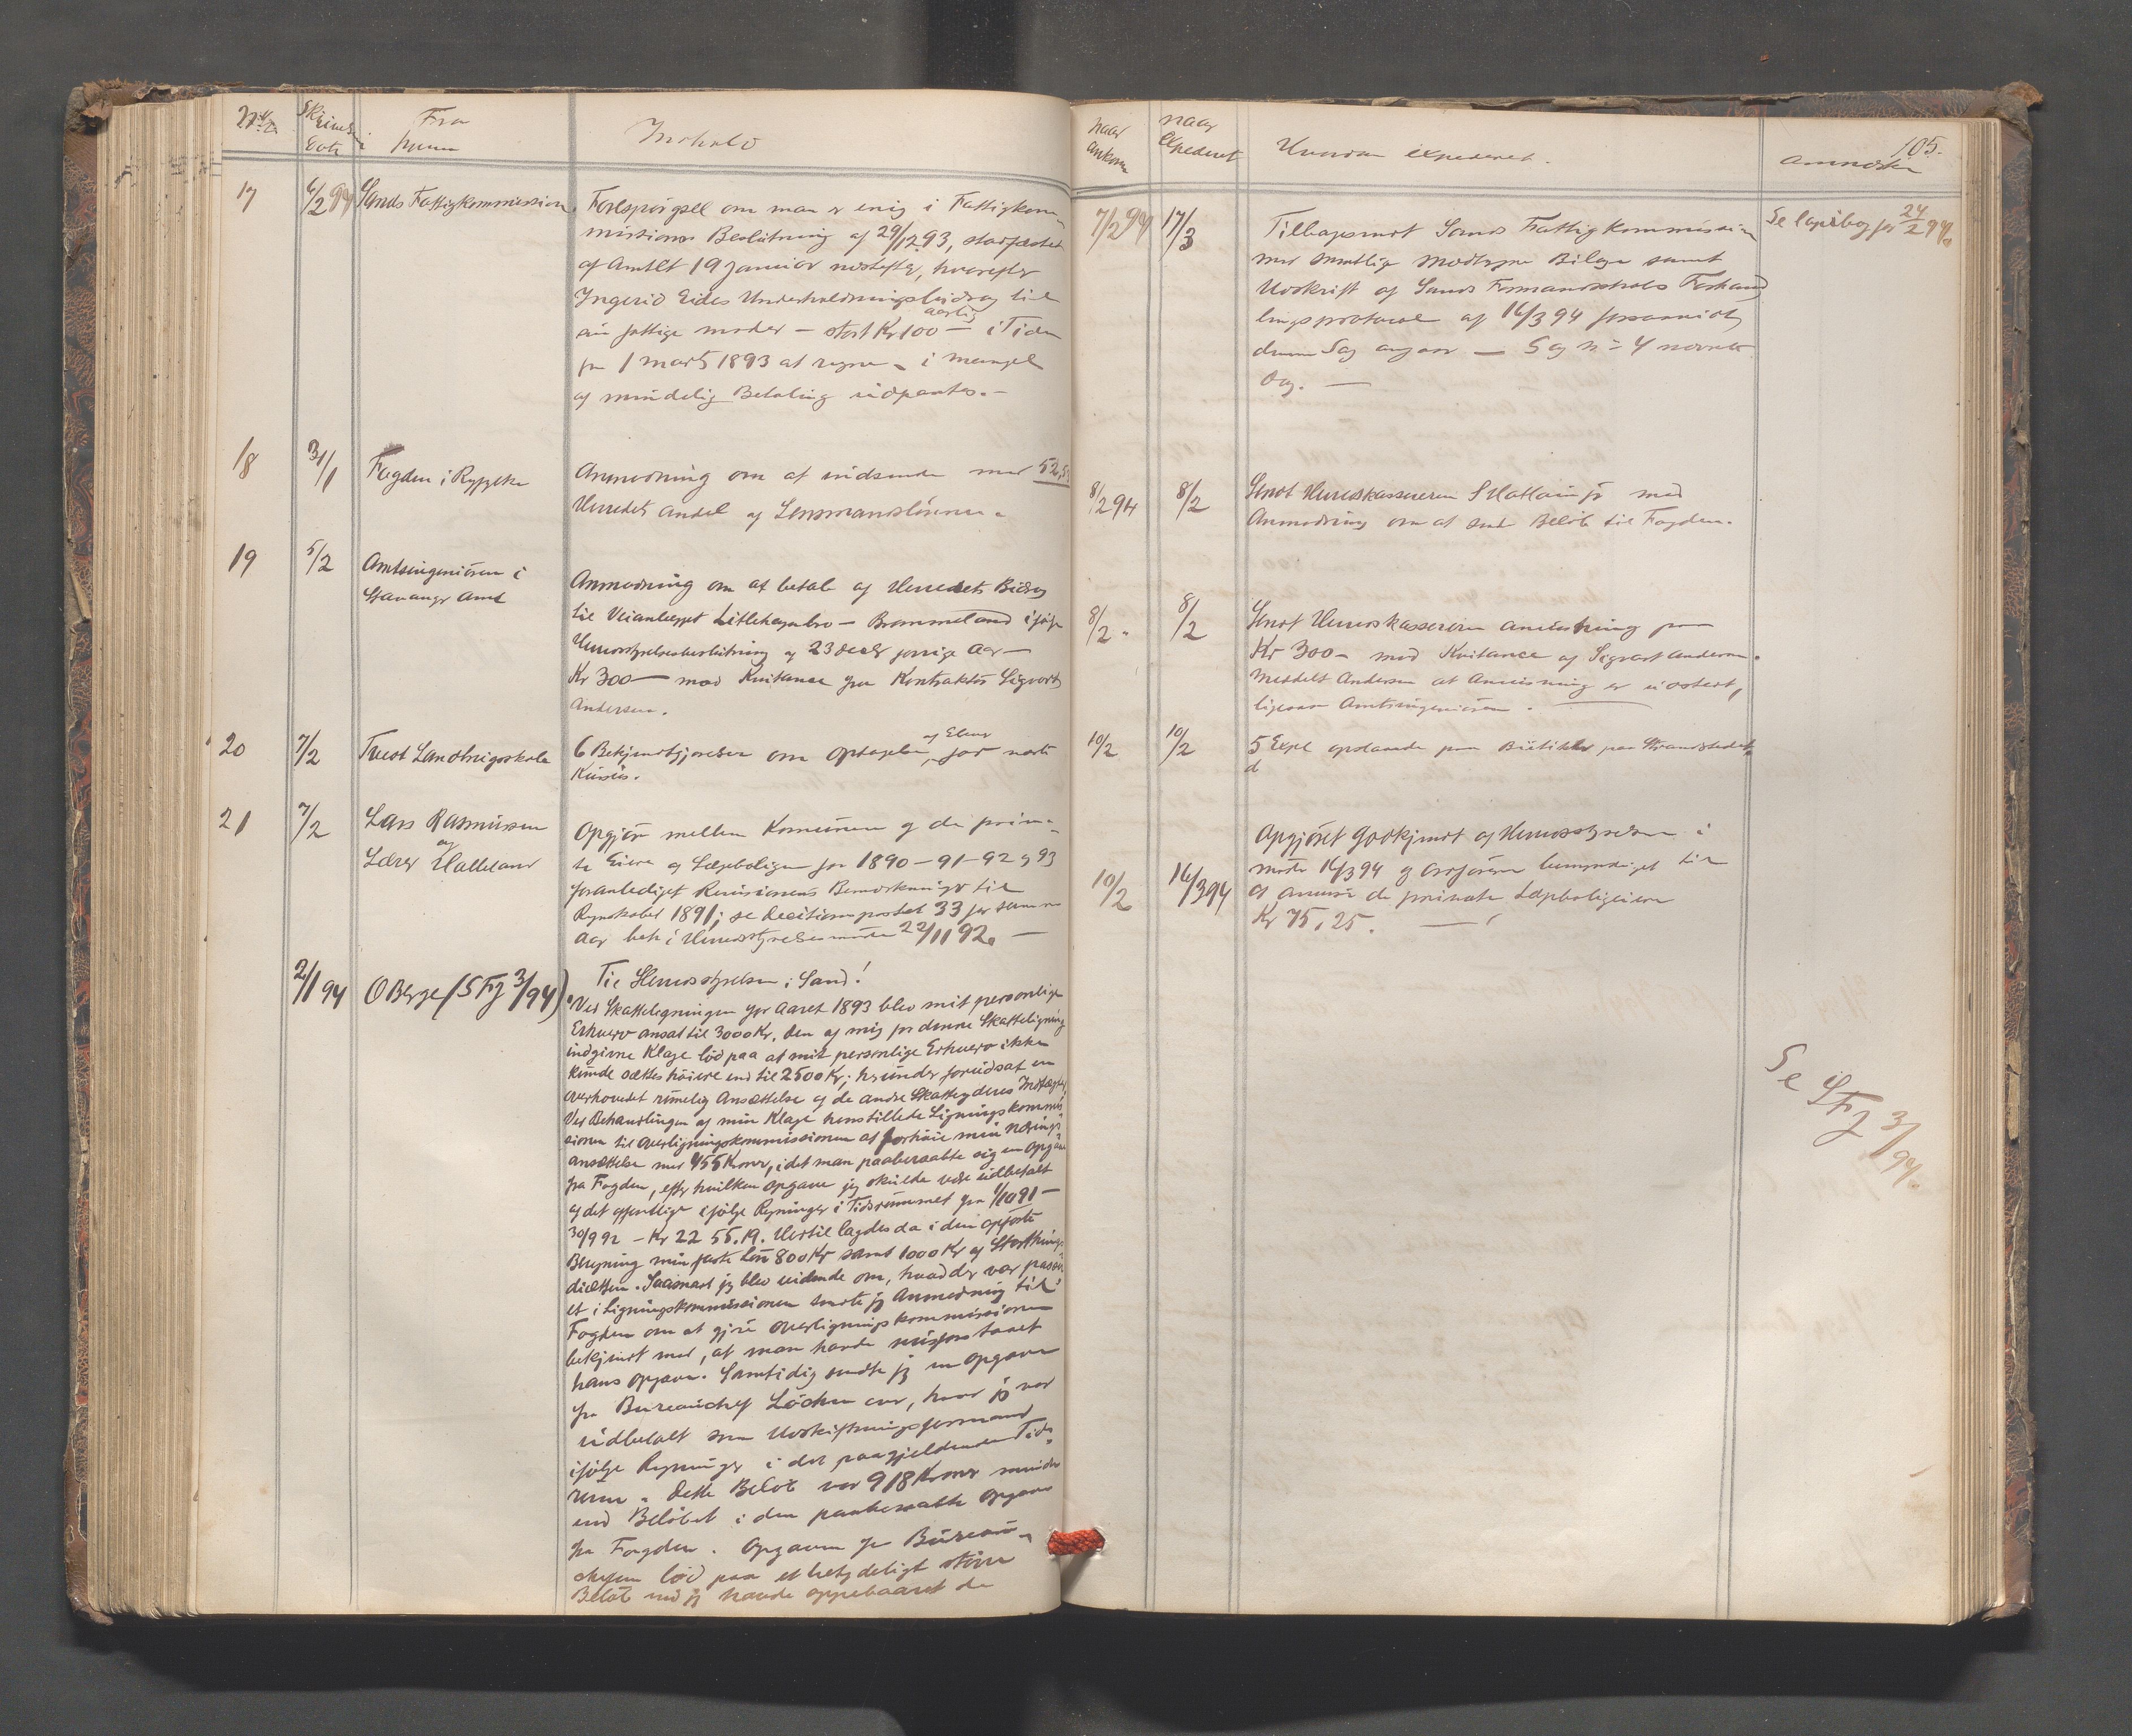 Fra
hvem
Indhold
17
6/2 94
Sands Fattigkommission.
Forespørgsel om man er enig i Fattigkom-
missions Beslutning af 29/12 93, stadfæstet
af Amtet 19 Januar næstefter, hvorefter
Ingerid Eides Underholdningsbidrag til
sin fattige moder – stort Kr 100 aarlig – i Tiden
fra 1 marts 1893 at regne – i mangel
af mindelig Betaling udpantes. –
18
31/1
Fogden i Ryfylke
Anmodning om at indsende med 52,
Herredets andel af Lensmandslønnen.
19
5/2
Amtsingeniøren i
Stavanger Amt
Anmodning om at betale af Herredets Bidrag
til Veianlægget – Brommeland ifølge
Herredsstyrelsesbeslutning af 23 decbr forrige Aar –
Kr 300 – mod Kvitance fra Kontraktør Sigvart
Andersen.
20
7/2
Tveit Landbrugsskole
6 Bekjendtgjørelser om Optagelse af Elever for næste
Kursus.
21
7/2
Lars Rasmussen
og
Lærer Halleland
Opgjør mellem Komunen og de priva-
te Eiere af Lægeboligen for 1890–91–92 & 93
foranlediget Revisionens Bemærkninger til
Regnskabet 1891; se Decitionspostet 33 for samme
Aar beh i Herredsstyrelsesmøde 22/11 92. –
2/1 94
O Berge (S Fz 3/94)
Til Herredsstyrelsen i Sand!
"Ved Skatteligningen for Aaret 1893 blev mit personlige
Erhverv ansat til 3000 Kr. Den af mig for denne Skatteligning
indgivne Klage lød paa at mit personlige Erhverv ikke
kunde sættes høiere end til 2500 Kr; herunder forudsat en
overhovedet rimelig Ansættelse af de andre Skatteyderes Indtægter.
Ved Behandlingen af min Klage henstillede Ligningskommis-
sionen til Overligningskommissionen at forhøie min Nærings-
ansættelse med 455 Kroner, idet man paaberaabte sig en Opgave
fra Fogden, efter hvilken Opgave jeg skulde være udbetalt
af det offentlige ifølge Regninger i Tidsrummet fra 1/10 91 –
30/9 92 – Kr 22 55.19. Hertil lagdes da i den opførte
Beregning min faste Løn 800 Kr samt 1000 Kr af Storthings-
diætten. Saasnart jeg blev vidende om, hvad der var passer-
et i Ligningskommissionen sendte jeg Anmodning til
Fogden om at gjøre Overligningskommissionen
bekjendt med, at man havde misforstaaet
hans Opgave. Samtidig sendte jeg en Opgave
fra Bureauchef Løchen over, hvad jeg var
udbetalt som Udskiftningsformand
ifølge Regninger i det paagjeldende Tids-
rum. Dette Beløb var 918 Kroner mindre
end Beløbet i den paaberaabte Opgave
fra Fogden. Opgaven fra Bureau-
chefen lød paa et betydeligt større
Beløb end jeg havde oppebaaret de
naar
ankom
naar
expederet
Hvordan expederet.
105.
7/2 94
17/3
Tilbagesendt Sands Fattigkommission
med samtlige modtagne Bilage samt
Udskrift af Sands Formandsskabs Forhand-
lingsprotocol af 16/3 94 forsaavidt
denne Sag angaar –
Dag. –
Se Copibog for 24/2 94.
8/2 94
8/2
Sendt Herredskassereren med
Anmodning om at sende Beløb til Fogden.
8/2 "
8/2
Sendt Herredskassereren anvisning paa
Kr 300 – mod Kvitance af Sigvart Andersen.
Meddelt Andersen at Anvisning er udstedt,
ligesaa Amtsingeniøren.
10/2
10/2
5 Expl opslaaede paa Butikker paa Strandstedet.
10/2
16/3 94
Opgjøret godkjendt af Herredsstyrelsen i
møde 16/3 94 og Ordføreren bemyndiget til
at anvise de private Lægeboligeiere
Kr 75,25. –
Se S Fz 3/94.